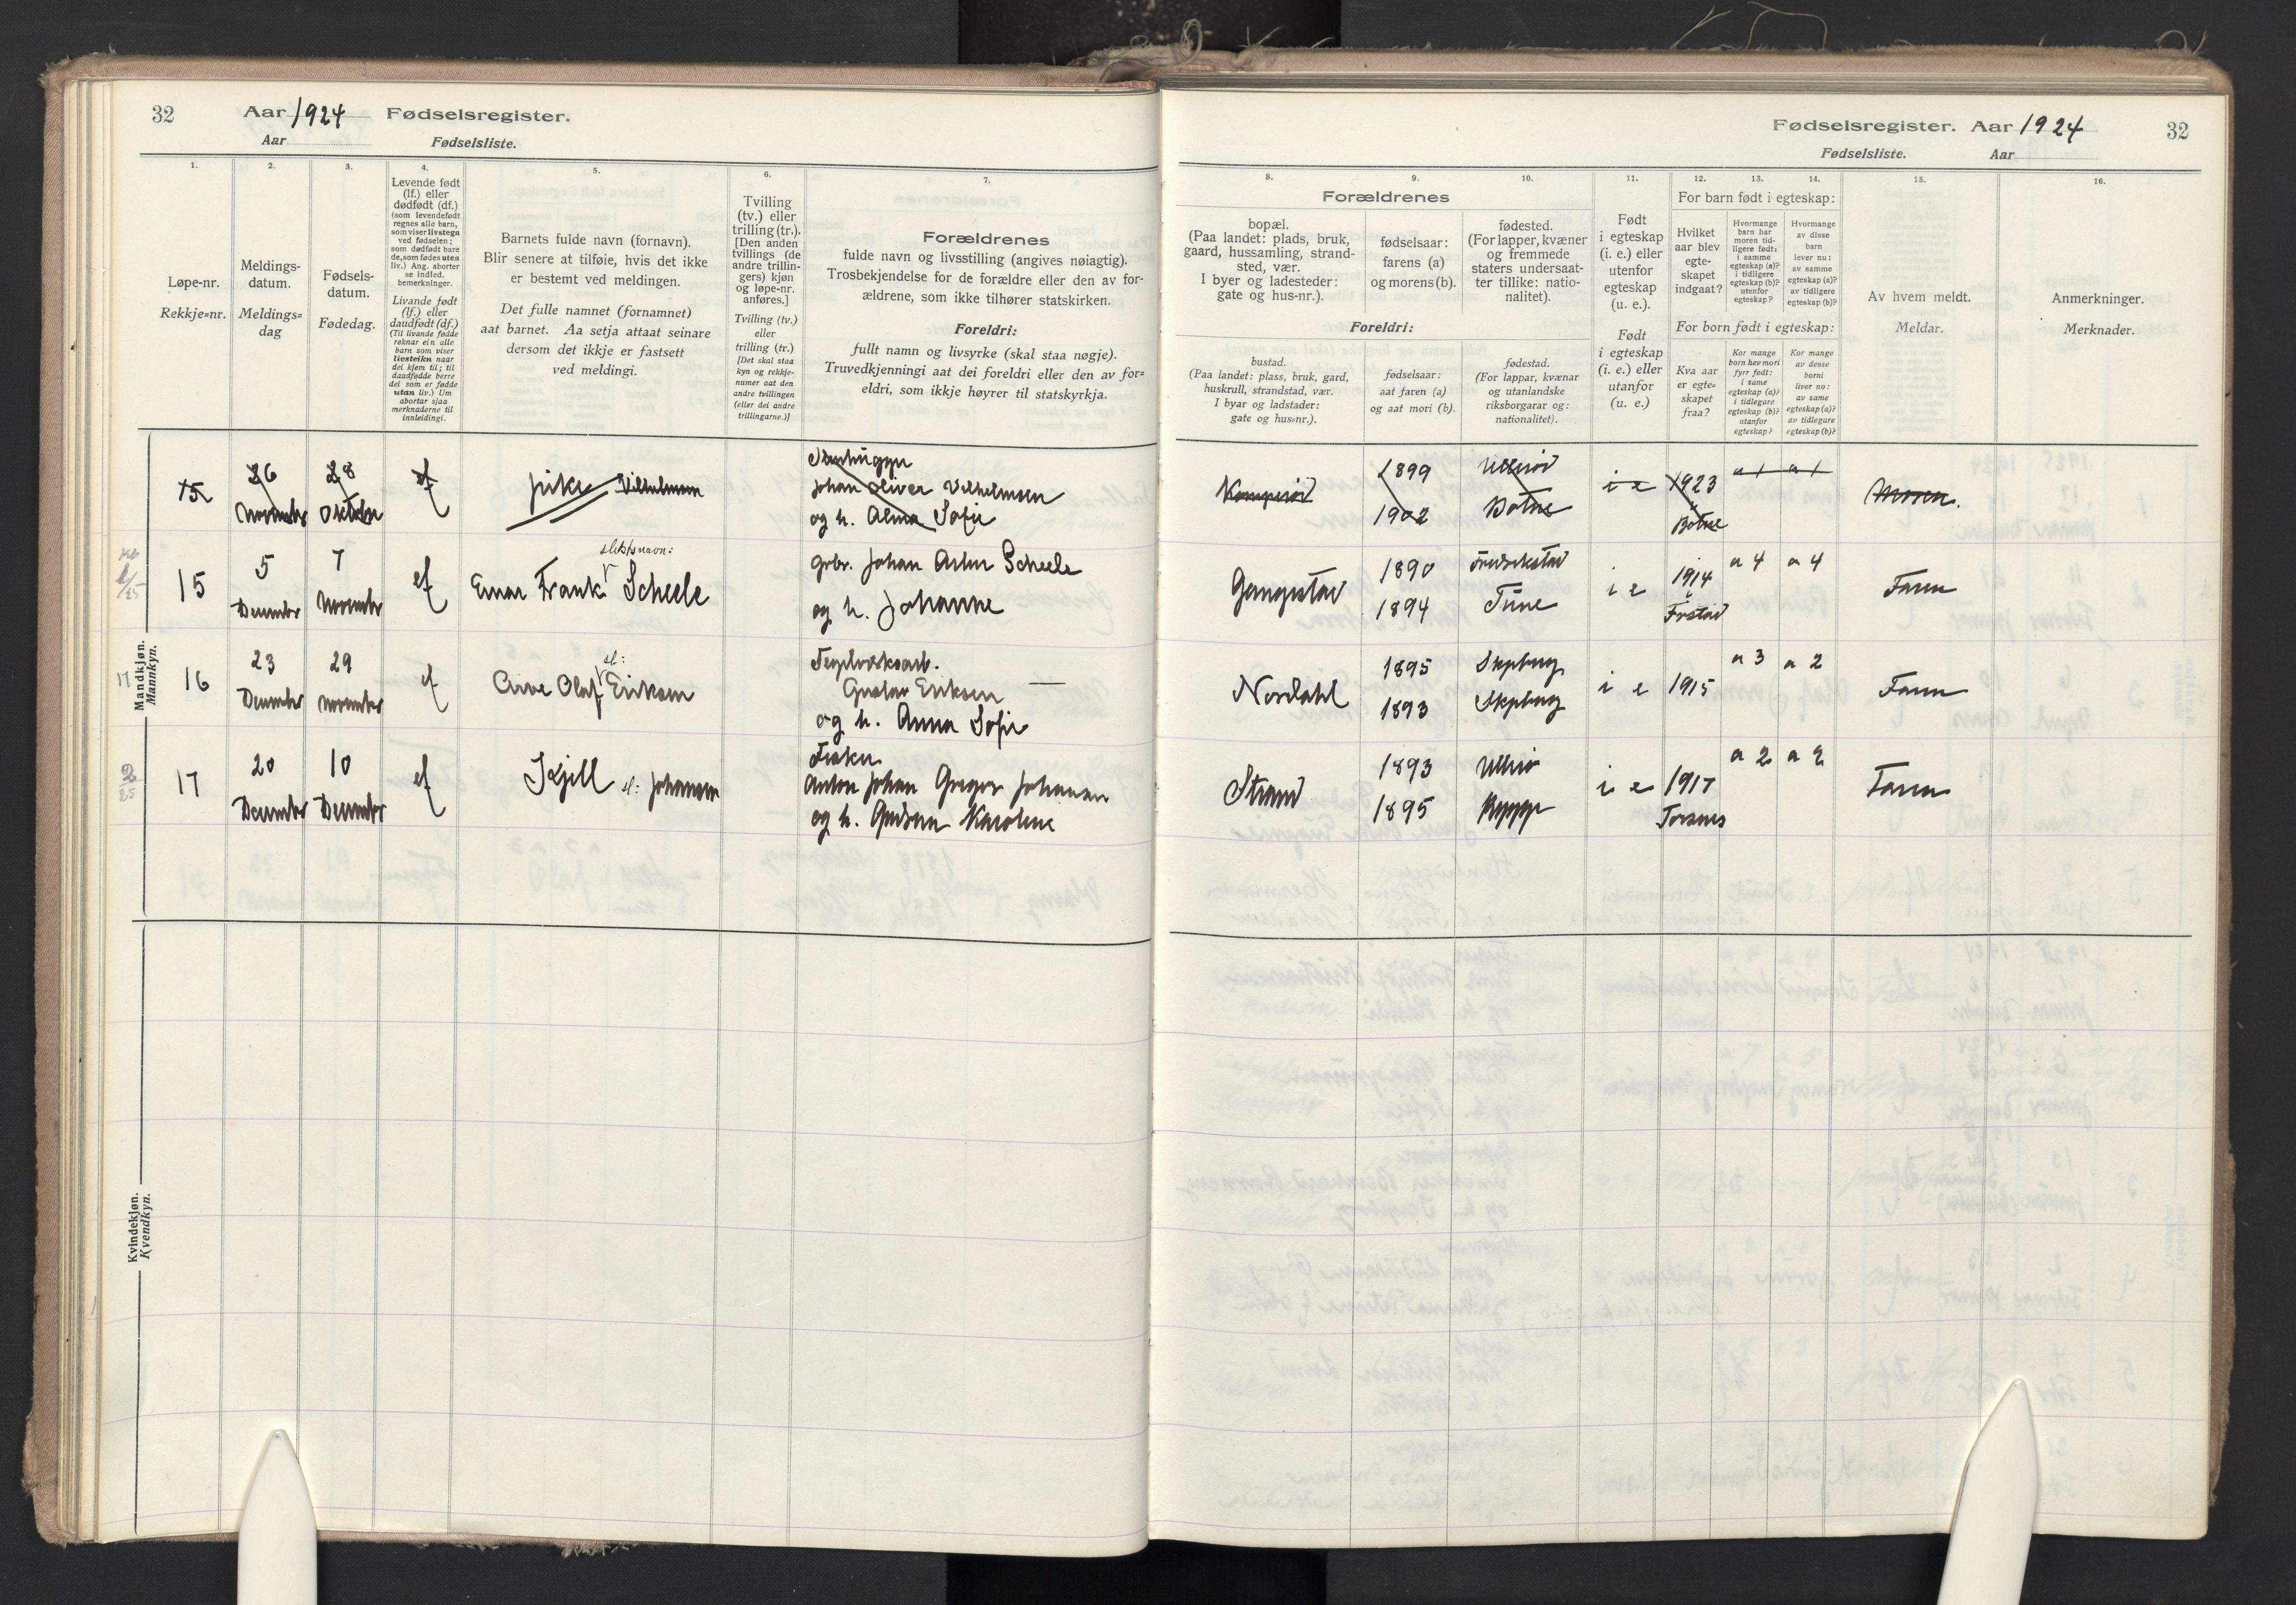 32
Aar 1924 Fødselsregister.
Aar Fødselsliste.
1.
Løpe-nr.
Rekkje=nr.
2.
Meldings-
datum.
Meldings=
dag
3.
Fødsels-
datum.
Fødedag.
4.
Levende født
(lf.) eller
dødfødt (df.)
(som levendefødt
regnes alle barn,
som viser livstegn
ved fødselen;
som dødfødt bare
de, som fødes uten
liv.) Ang. aborter
se indled.
bemerkninger.
Livande født
(lf.) eller
daudfødt (df.)
(Til livande fødde
reknar ein alle
barn som viser
livsteikn naar
dei kjem til; til
daudfødde berre
dei som er fødde
utan liv.) Um
abortar sjaa
merknaderne til
innleidingi.
5.
Barnets fulde navn (fornavn).
Blir senere at tilføie, hvis det ikke
er bestemt ved meldingen.
Det fulle namnet (fornamnet)
aat barnet. Aa setja attaat seinare
dersom det ikkje er fastsett
ved meldingi.
6.
Tvilling
(tv.) eller
trilling (tr.).
[Den anden
tvillings (de
andre trillin-
gers) kjøn
og løpe-nr.
anføres.]
Tvilling (tv.)
eller
trilling (tr.)
[Det skal staa
kyn og rekkje-
numer aat den
andre tvillingen
(eller dei andre
trillingarne.)]
7.
Forældrenes
fulde navn og livsstilling (angives nøiagtig).
Trosbekjendelse for de forældre eller den av for-
ældrene, som ikke tilhører statskirken.
Foreldri:
fullt namn og livsyrke (skal staa nøgje).
Truvedkjenningi aat dei foreldri eller den av for=
eldri, som ikkje høyrer til statskyrkja.
Mandkjøn.
Mannkyn.
15
26
November
28
Oktober
lf
pike Vilhelmsen
Stenhugger
Johan Oliver Vilhelmsen
og h. Alma Sofie
15
5
December
7
November
lf
slektsnavn:
Einar Frank Scheele
grbr. Johan Artur Scheele
og h. Johanne
17
16
23
December
29
November
lf
sl:
Arve Olaf Eriksen
Teglverksarb.
Gustav Eriksen
og h. Anna Sofie
2/25
17
20
December
10
December
lf
Kjell sl: Johansen
Fisker
Anton Johan Gregor Johansen
og h. Gudrun Karoline
Kvindekjøn.
Kvendkyn.
Fødselsregister. Aar 1924
32
Fødselsliste. Aar
8.
Forældrenes
bopæl.
(Paa landet: plads, bruk,
gaard, hussamling, strand-
sted, vær.
I byer og ladesteder:
gate og hus-nr.).
Foreldri:
bustad.
(Paa landet: plass, bruk, gard,
huskrull, strandstad, vær.
I byar og ladstader:
gate og hus=nr.).
9.
fødselsaar:
farens (a)
og morens (b).
fødselsaar:
aat faren (a)
og aat mori (b).
10.
fødested.
(For lapper, kvæner
og fremmede
staters undersaat-
ter tillike: natio-
nalitet).
fødestad.
(For lappar, kvænar
og utanlandske
riksborgarar og:
nationalitet).
11.
Født
i egteskap
(i. e.) eller
utenfor
egteskap
(u. e.).
Født
i egteskap
(i. e.) eller
utanfor
(u. e.)
12. 13. 14.
For barn født i egteskap:
Hvilket
aar blev
egte-
skapet
indgaat?
Hvormange
barn har
moren tid-
ligere født:
i samme
egteskap (a)?
i tidligere
egteskap (b)?
utenfor
egteskap?
Hvormange
av disse
barn
lever nu:
av samme
egteskap (a)?
av tidligere
egteskap (b)?
For born født i egteskap:
Kva aar
er egte=
skapet
fraa?
Kor mange
born hev mori
fyrr født:
i same
egteskap (a)?
i tidlegare
egteskap (b)?
utanfor
egteskap?
Kor mange
av desse
borni
liver no:
av same
egteskap (a)?
av tidlegare
egteskap (b)?
15.
Av hvem meldt.
Meldar.
16.
Anmerkninger.
Merknader.
Kamperød
1899
1902
Ullerød
Botne
i e
1923
Botne
a 1 a 1
Moren.
Gangestad
1890
1894
Fredrikstad
Tune
i e
1914
Frstad
a 4 a 4
Faren
Nordahl
1895
1893
Skjeberg
Skjeberg
i e
1915
a 3 a 2
Faren
Strand
1893
1895
Ullerø
i e
1917
Torsnes
a 2 a 2
Faren